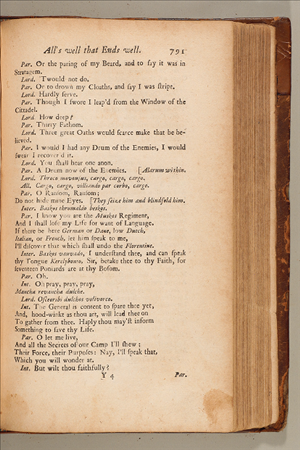 All's well that Ends well. 791
Par. Or the paring of my Beard, and to say it was in
Stratagem.
Lord. 'Twould not do.
Par. Or to drown my Cloaths, and say I was stript.
Lord. Hardly serve.
Par. Though I swore I leap'd from the Window of the
Cittadel.
Lord. How deep?
Par. Thirty Fathom.
Lord. Three great Oaths would scarce make that be be-
lieved.
Par. I would I had any Drum of the Enemies, I would
swear I recover'd it.
Lord. You shall hear one anon.
Par. A Drum now of the Enemies. [Alarum within.
Lord. Throca movousus, cargo, cargo, cargo.
All. Cargo, cargo, villianda par corbo, cargo.
Par. O Ransom, Ransom;
Do not hide mine Eyes. [They seize him and blindfold him.
Inter. Boskos thromuldo boskos.
Par. I know you are the Muskos Regiment,
And I shall lose my Life for want of Language.
If there be here German or Dane, low Dutch,
Italian, or French, let him speak to me,
I'll discover that which shall undo the Florentine.
Inter. Boskos vauvado, I understand thee, and can speak
thy Tongue Kerelybonto, Sir, betake thee to thy Faith, for
seventeen Poniards are at thy Bosom.
Par. Oh.
Int. Oh pray, pray, pray,
Mancha revancha dulche.
Lord. Osceorbi dulchos volivorco.
Int. The General is content to spare thee yet,
And, hood-winkt as thou art, will lead thee on
To gather from thee. Haply thou may'st inform
Something to save thy Life.
Par. O let me live,
And all the Secrets of our Camp I'll shew;
Their Force, their Purposes: Nay, I'll speak that,
Which you will wonder at.
Int. But wilt thou faithfully?
Y 4 Par.